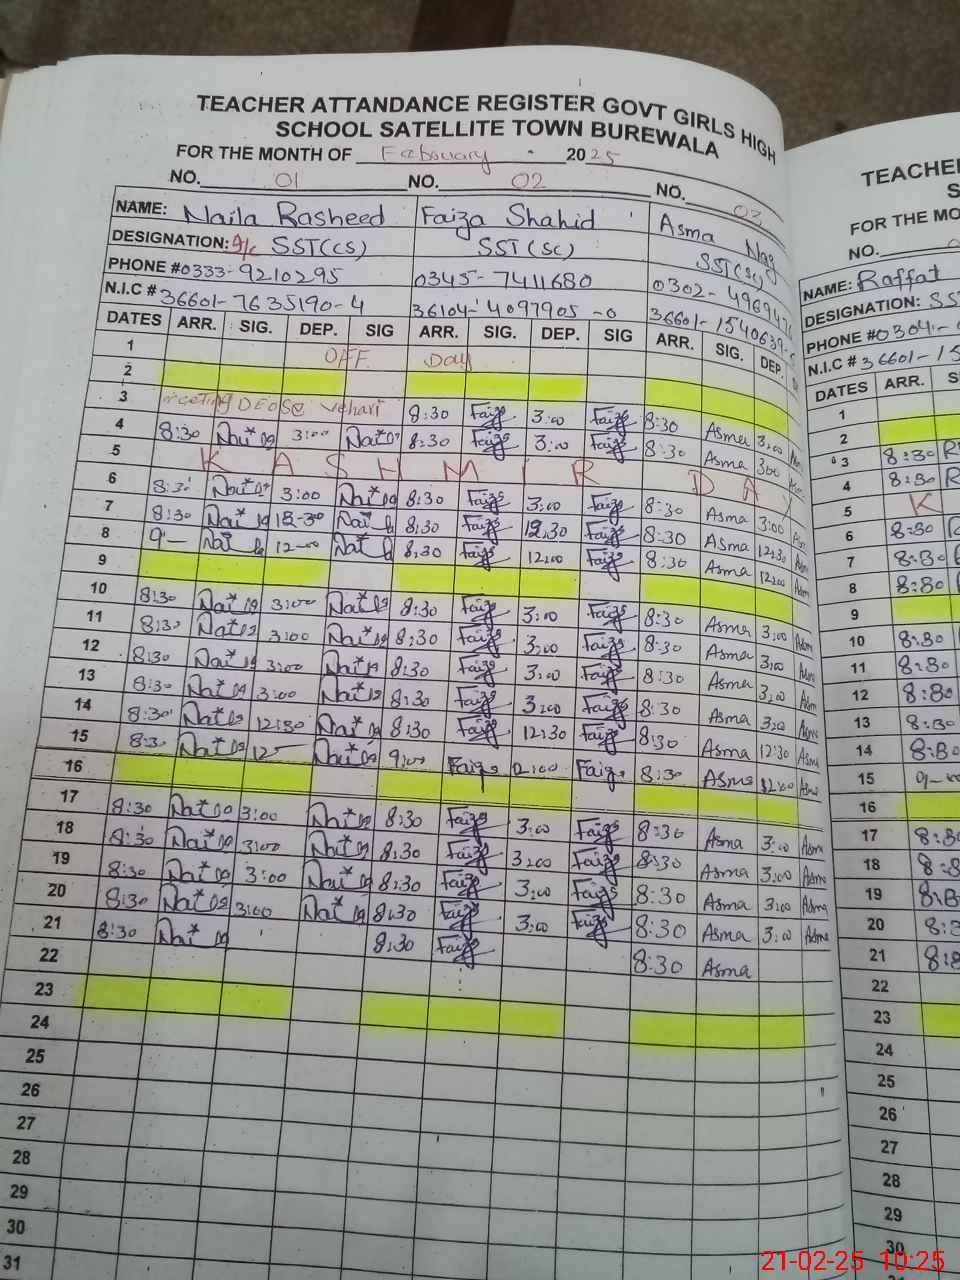 TEACHER ATTANDANCE REGISTER GOVT GIRLS HIGH
SCHOOL SATELLITE TOWN BUREWALA
FOR THE MONTH OF February 2025
NO. 01 NO. 02 NO. 03
NAME: Naila Rasheed Faiza Shahid Asma Naz
DESIGNATION: I/c SST(CS) SST(SC) SST(SC)
PHONE #0333-9210295 0345-7411680 0302-
N.I.C # 36601-7635190-4 36104-4097905-0 36601-1540639-
DATES ARR. SIG. DEP. SIG ARR. SIG. DEP. SIG ARR. SIG. DEP.
1 OFF Day
2
3 meeting DEOSE vehari 8:30 Faiza 3:00 Faiza 8:30 Asma 3:00
4 8:30 3:00 8:30 Faiza 3:00 Faiza 8:30 Asma 3:00
5 KASHMIR DAY
6 8:30 3:00 8:30 Faiza 3:00 Faiza 8:30 Asma 3:00
7 8:30 12-30 8:30 Faiza 12.30 Faiza 8:30 Asma 12:30
8 9- 12-00 8:30 Faiza 12:00 Faiza 8:30 Asma 12:00
9
10 8:30 3:00 8:30 Faiza 3:00 Faiza 8:30 Asma 3:00
11 8:30 3:00 8:30 Faiza 3:00 Faiza 8:30 Asma 3:00
12 8:30 3:00 8:30 Faiza 3:00 Faiza 8:30 Asma 3:00
13 8:30 3:00 8:30 Faiza 3:00 Faiza 8:30 Asma 3:00
14 8:30 12:30 8:30 Faiza 12:30 Faiza 8:30 Asma 12:30 Asma
15 8:30 12- 9:00 Faiza 12:00 Faiza 8:30 Asma 12:00 Asma
16
17 8:30 3:00 8:30 Faiza 3:00 Faiza 8:30 Asma 3:00 Asma
18 8:30 3:00 8:30 Faiza 3:00 Faiza 8:30 Asma 3:00 Asma
19 8:30 3:00 8:30 Faiza 3:00 Faiza 8:30 Asma 3:00 Asma
20 8:30 3:00 8:30 Faiza 3:00 Faiza 8:30 Asma 3:00 Asma
21 8:30 8:30 Faiza 8:30 Asma
22
23
24
25
26
27
28
29
30
31
TEACHER
S
FOR THE MO
NO.
NAME: Raffat
DESIGNATION: SS
PHONE #0304-
N.I.C # 36601-15
DATES ARR. S
1
2
3 8:30
4 8:30
5 K
6 8:30
7 8:30
8 8:30
9
10 8:30
11 8:30
12 8:30
13 8:30
14 8:30
15 9-
16
17 8:3
18 8:3
19 8:3
20 8:3
21 8:3
22
23
24
25
26
27
28
29
30
21-02-25 10:25